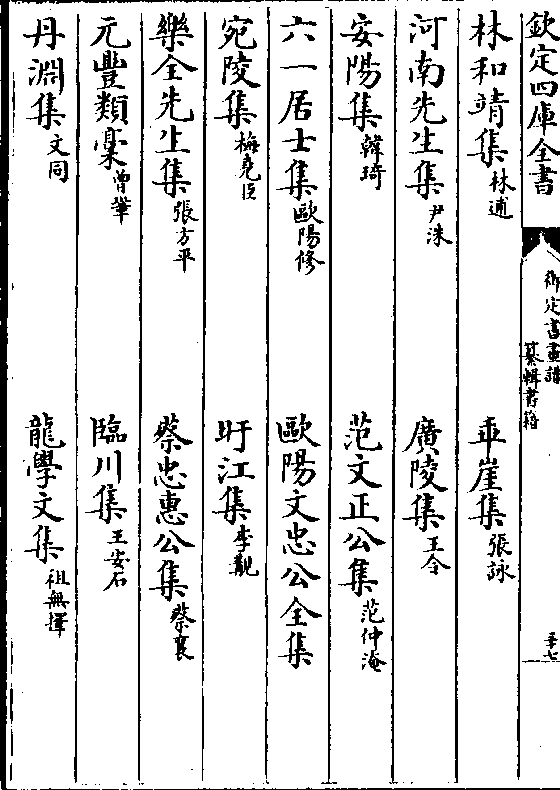 欽定四庫全書
御定書畫譜
纂輯書籍
三十七
林和靖集林逋 乖崖集張詠
河南先生集尹洙 廣陵集王令
安陽集韓琦 范文正公集范仲淹
六一居士集歐陽修 歐陽文忠公全集
宛陵集梅堯臣 盱江集李覯
樂全先生集張方平 蔡忠惠公集蔡襄
元豐類稾曾鞏 臨川集王安石
丹淵集文同 龍學文集祖無擇